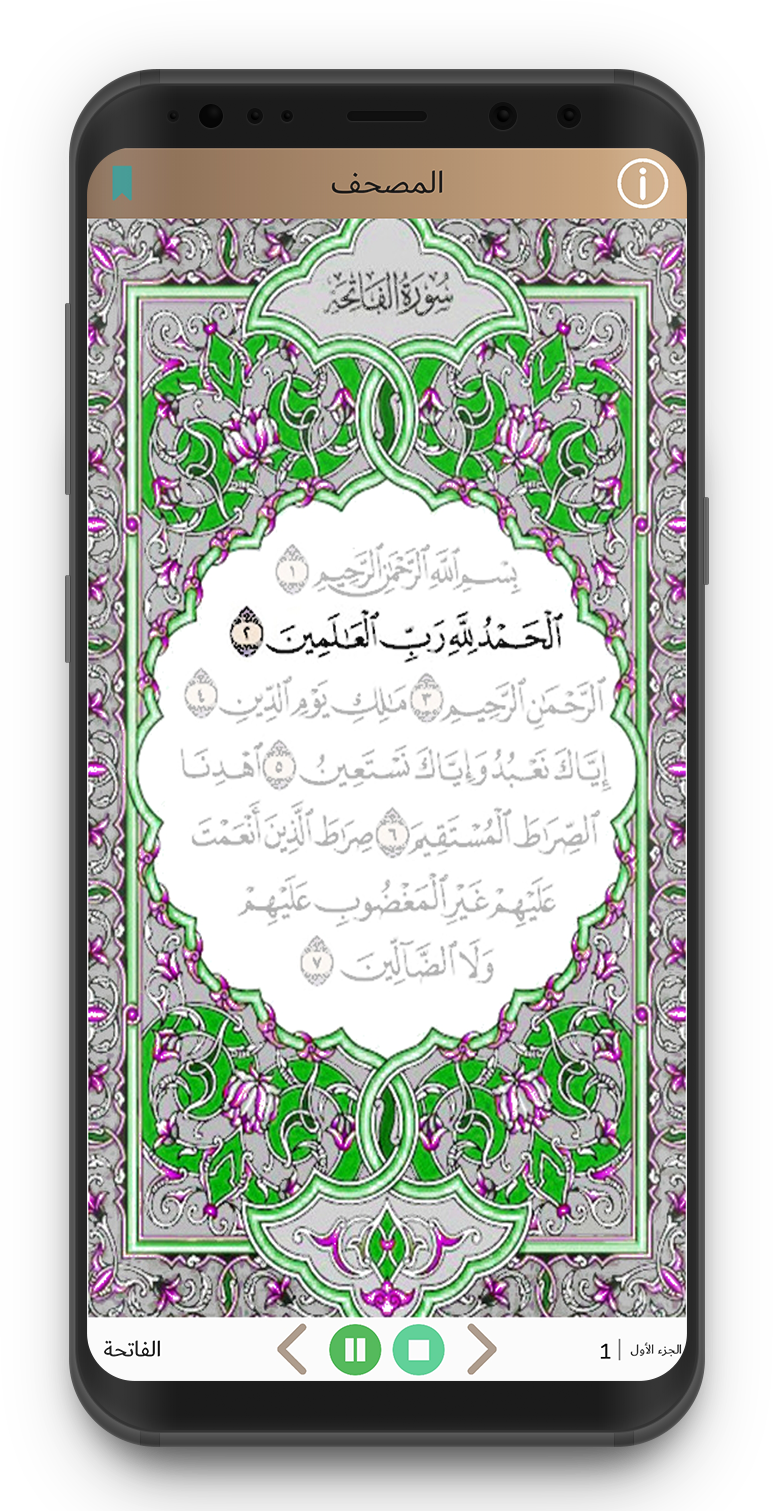 المصحف
سُورَةُ الفَاتِحَةِ
بِسْمِ ٱللَّهِ ٱلرَّحْمَٰنِ ٱلرَّحِيمِ ١
ٱلْحَمْدُ لِلَّهِ رَبِّ ٱلْعَٰلَمِينَ ٢
ٱلرَّحْمَٰنِ ٱلرَّحِيمِ ٣ مَٰلِكِ يَوْمِ ٱلدِّينِ ٤
إِيَّاكَ نَعْبُدُ وَإِيَّاكَ نَسْتَعِينُ ٥ ٱهْدِنَا
ٱلصِّرَٰطَ ٱلْمُسْتَقِيمَ ٦ صِرَٰطَ ٱلَّذِينَ أَنْعَمْتَ
عَلَيْهِمْ غَيْرِ ٱلْمَغْضُوبِ عَلَيْهِمْ
وَلَا ٱلضَّآلِّينَ ٧
الجزء الأول | 1
الفاتحة